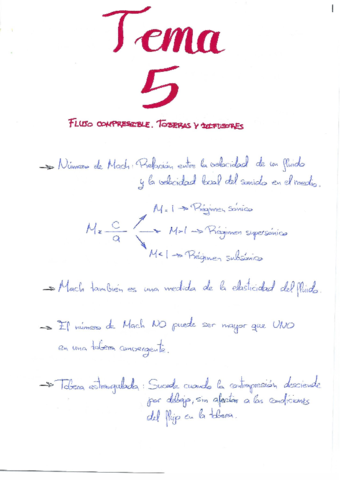 1
Tema
5
FLUJO COMPRESIBLE. TOBERAS Y DIFUSORES
→ Número de Mach: Relación entre la velocidad de un fluido
y la velocidad local del sonido en el medio.
M=1 → Régimen sónico
M = C/a → M>1 → Régimen supersónico
M<1 → Régimen subsónico
→ Mach también es una medida de la elasticidad del fluido.
→ El número de Mach NO puede ser mayor que UNO
en una tobera convergente.
→ Tobera estrangulada: Sucede cuando la contrapresión desciende
por debajo, sin afectar a las condiciones
del flujo en la tobera.